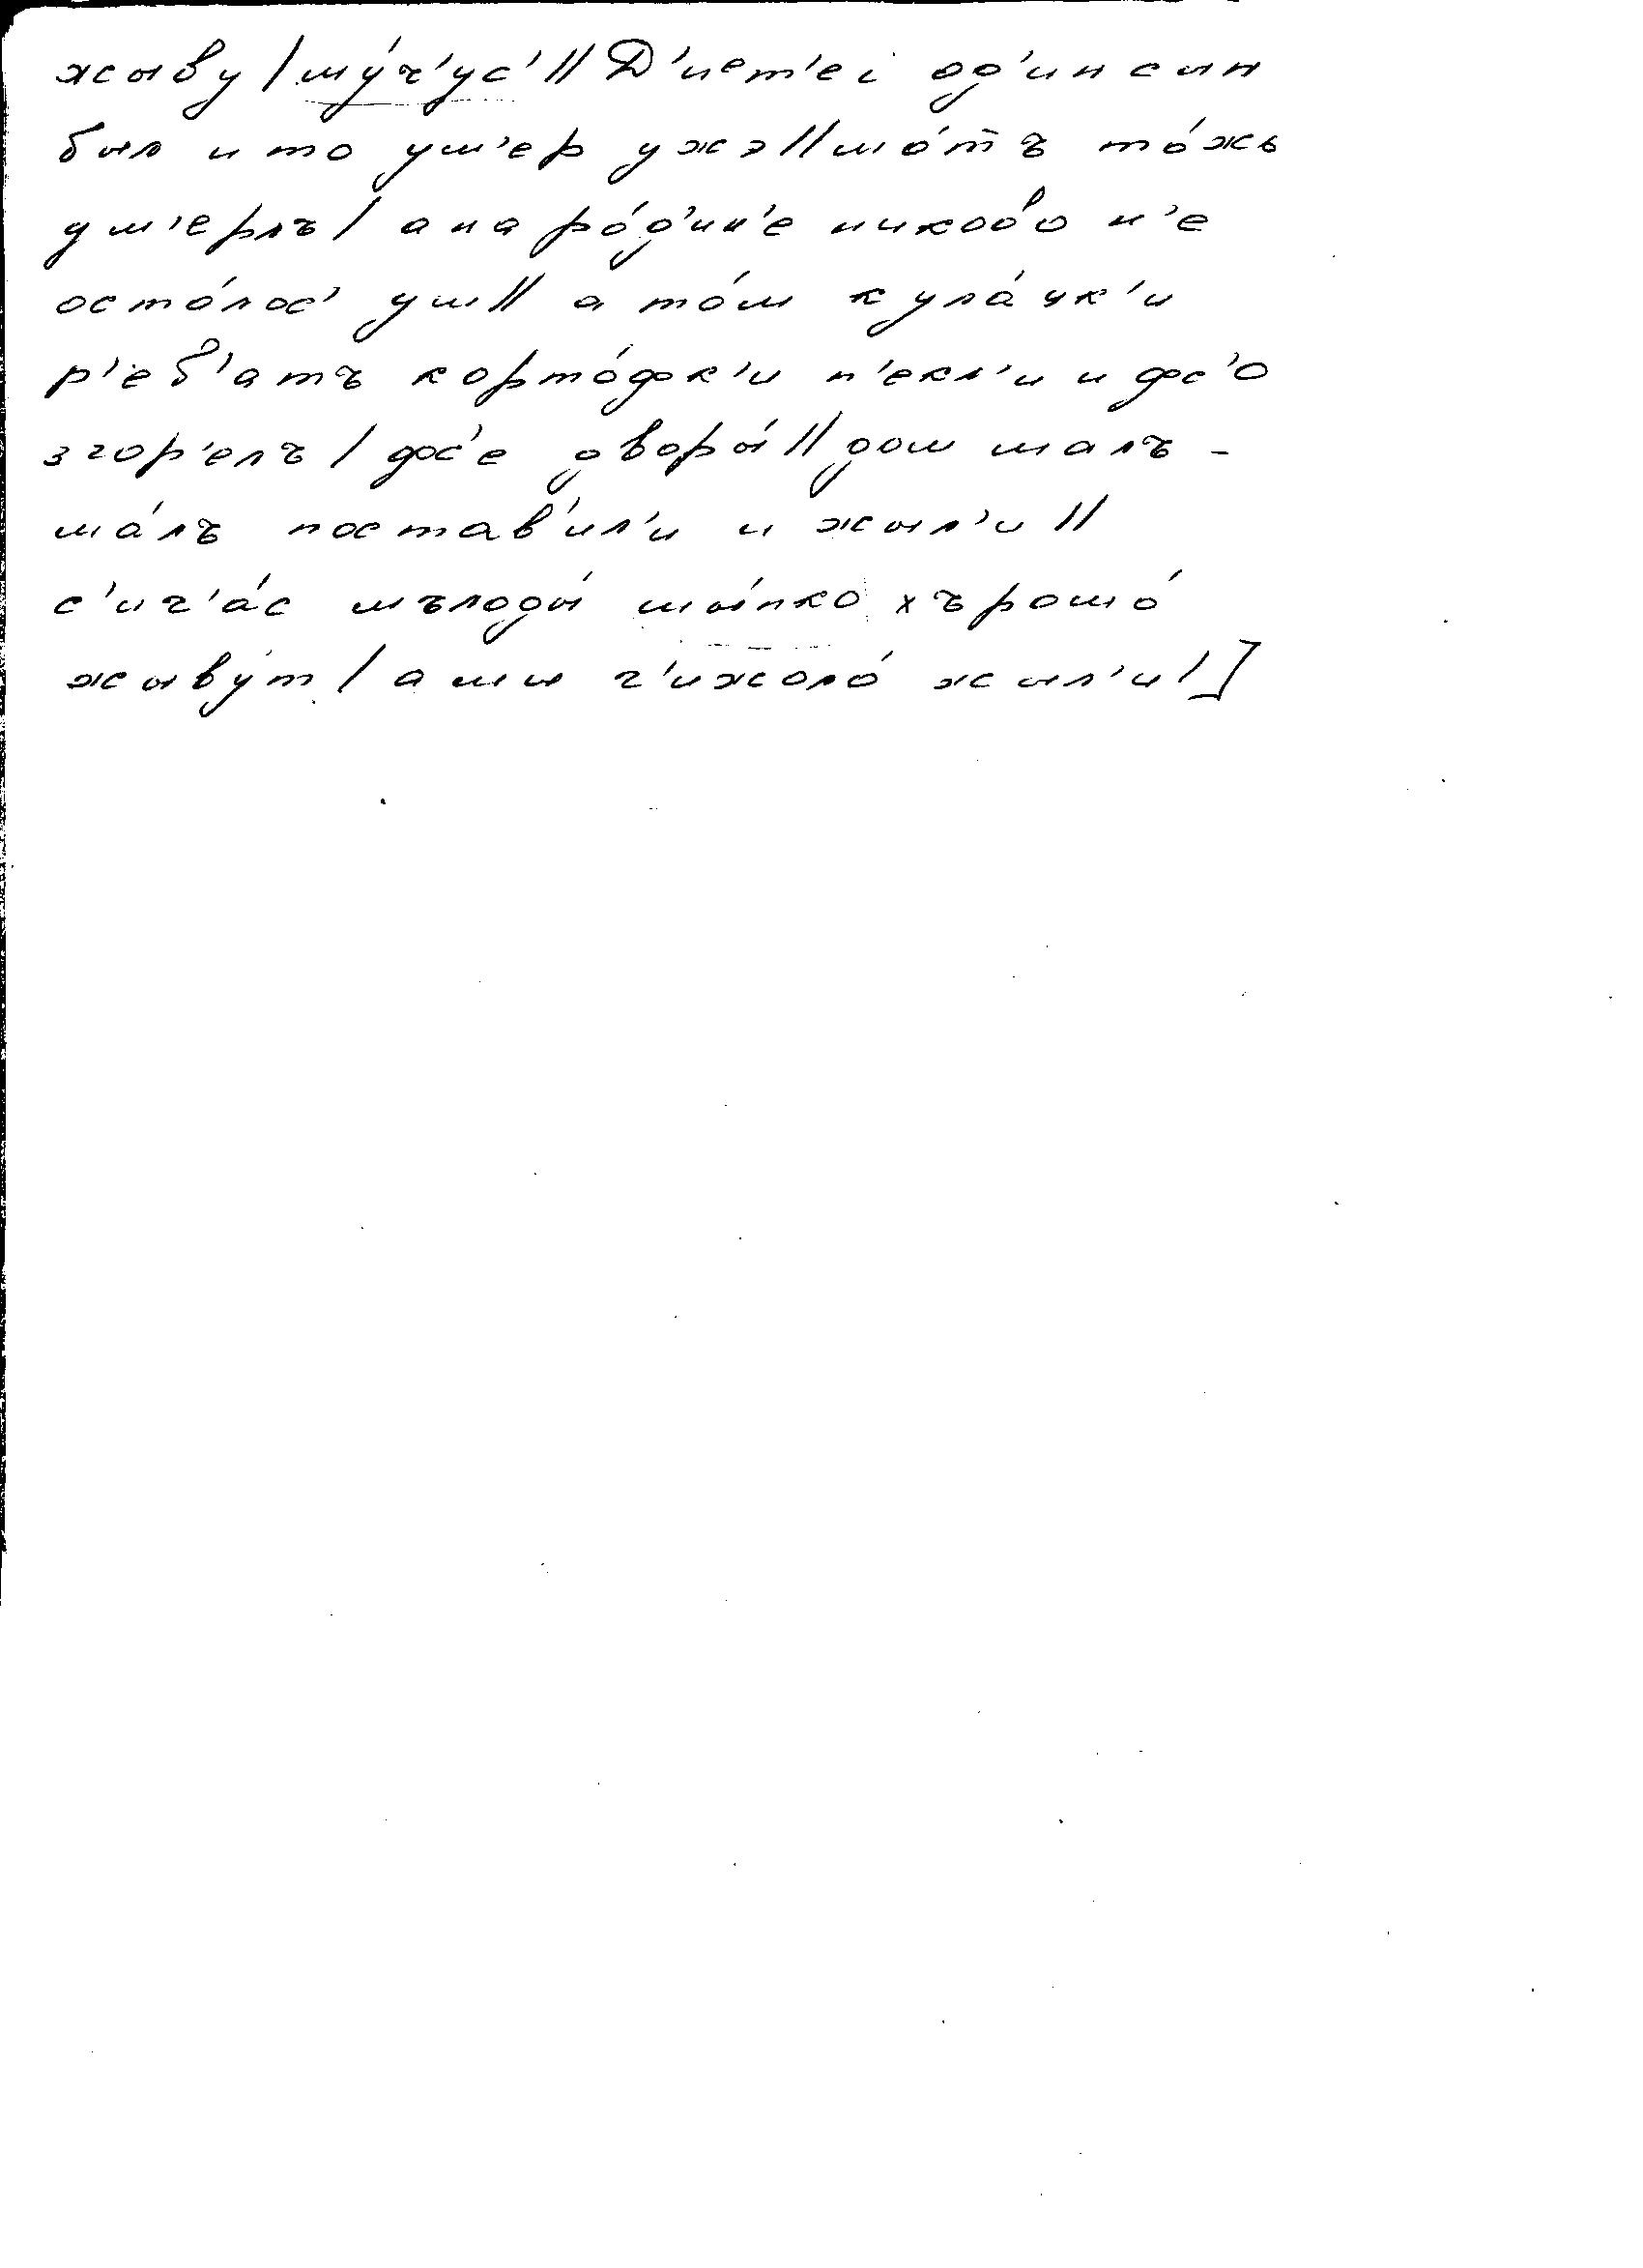 жыву / му́ч'ус' // Д'иет'еі од'ин сын
был и то ум'ер ужэ // мо́т̄ъ то́жь
ум'ерлъ / а на ро́д'ин'е никово н'е
осто́лос' уш // а то́м кула́чк'и
р'еб'атъ корто́фк'и п'екл'и и фс'о
згор'елъ / фс'е дворы́ // дом малъ -
ма́лъ постав'ил'и и жыл'и //
с'ич'а́с мълоды́ шы́пко хърошо́
жыву́т / а мы ч'ижоло́ жыл'и / ]